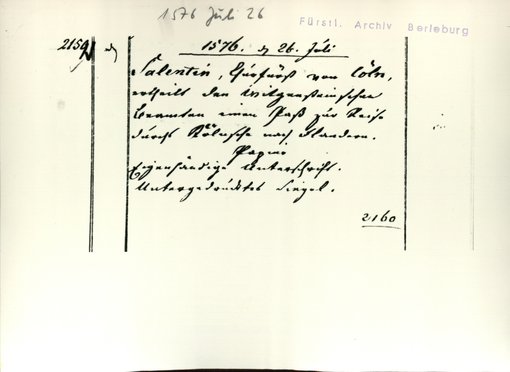 1576 Juli 26
Fürstl. Archiv Berleburg
1576. 26. Juli
Salentin, Churfürst von Cöln,
ertheilt den Witgensteinschen
Beamten einen Paß zur Reise
durchs Kölnsche nach Flandern.
Papier
Eigenhändige Unterschrift.
Untergedrücktes Siegel.
2160